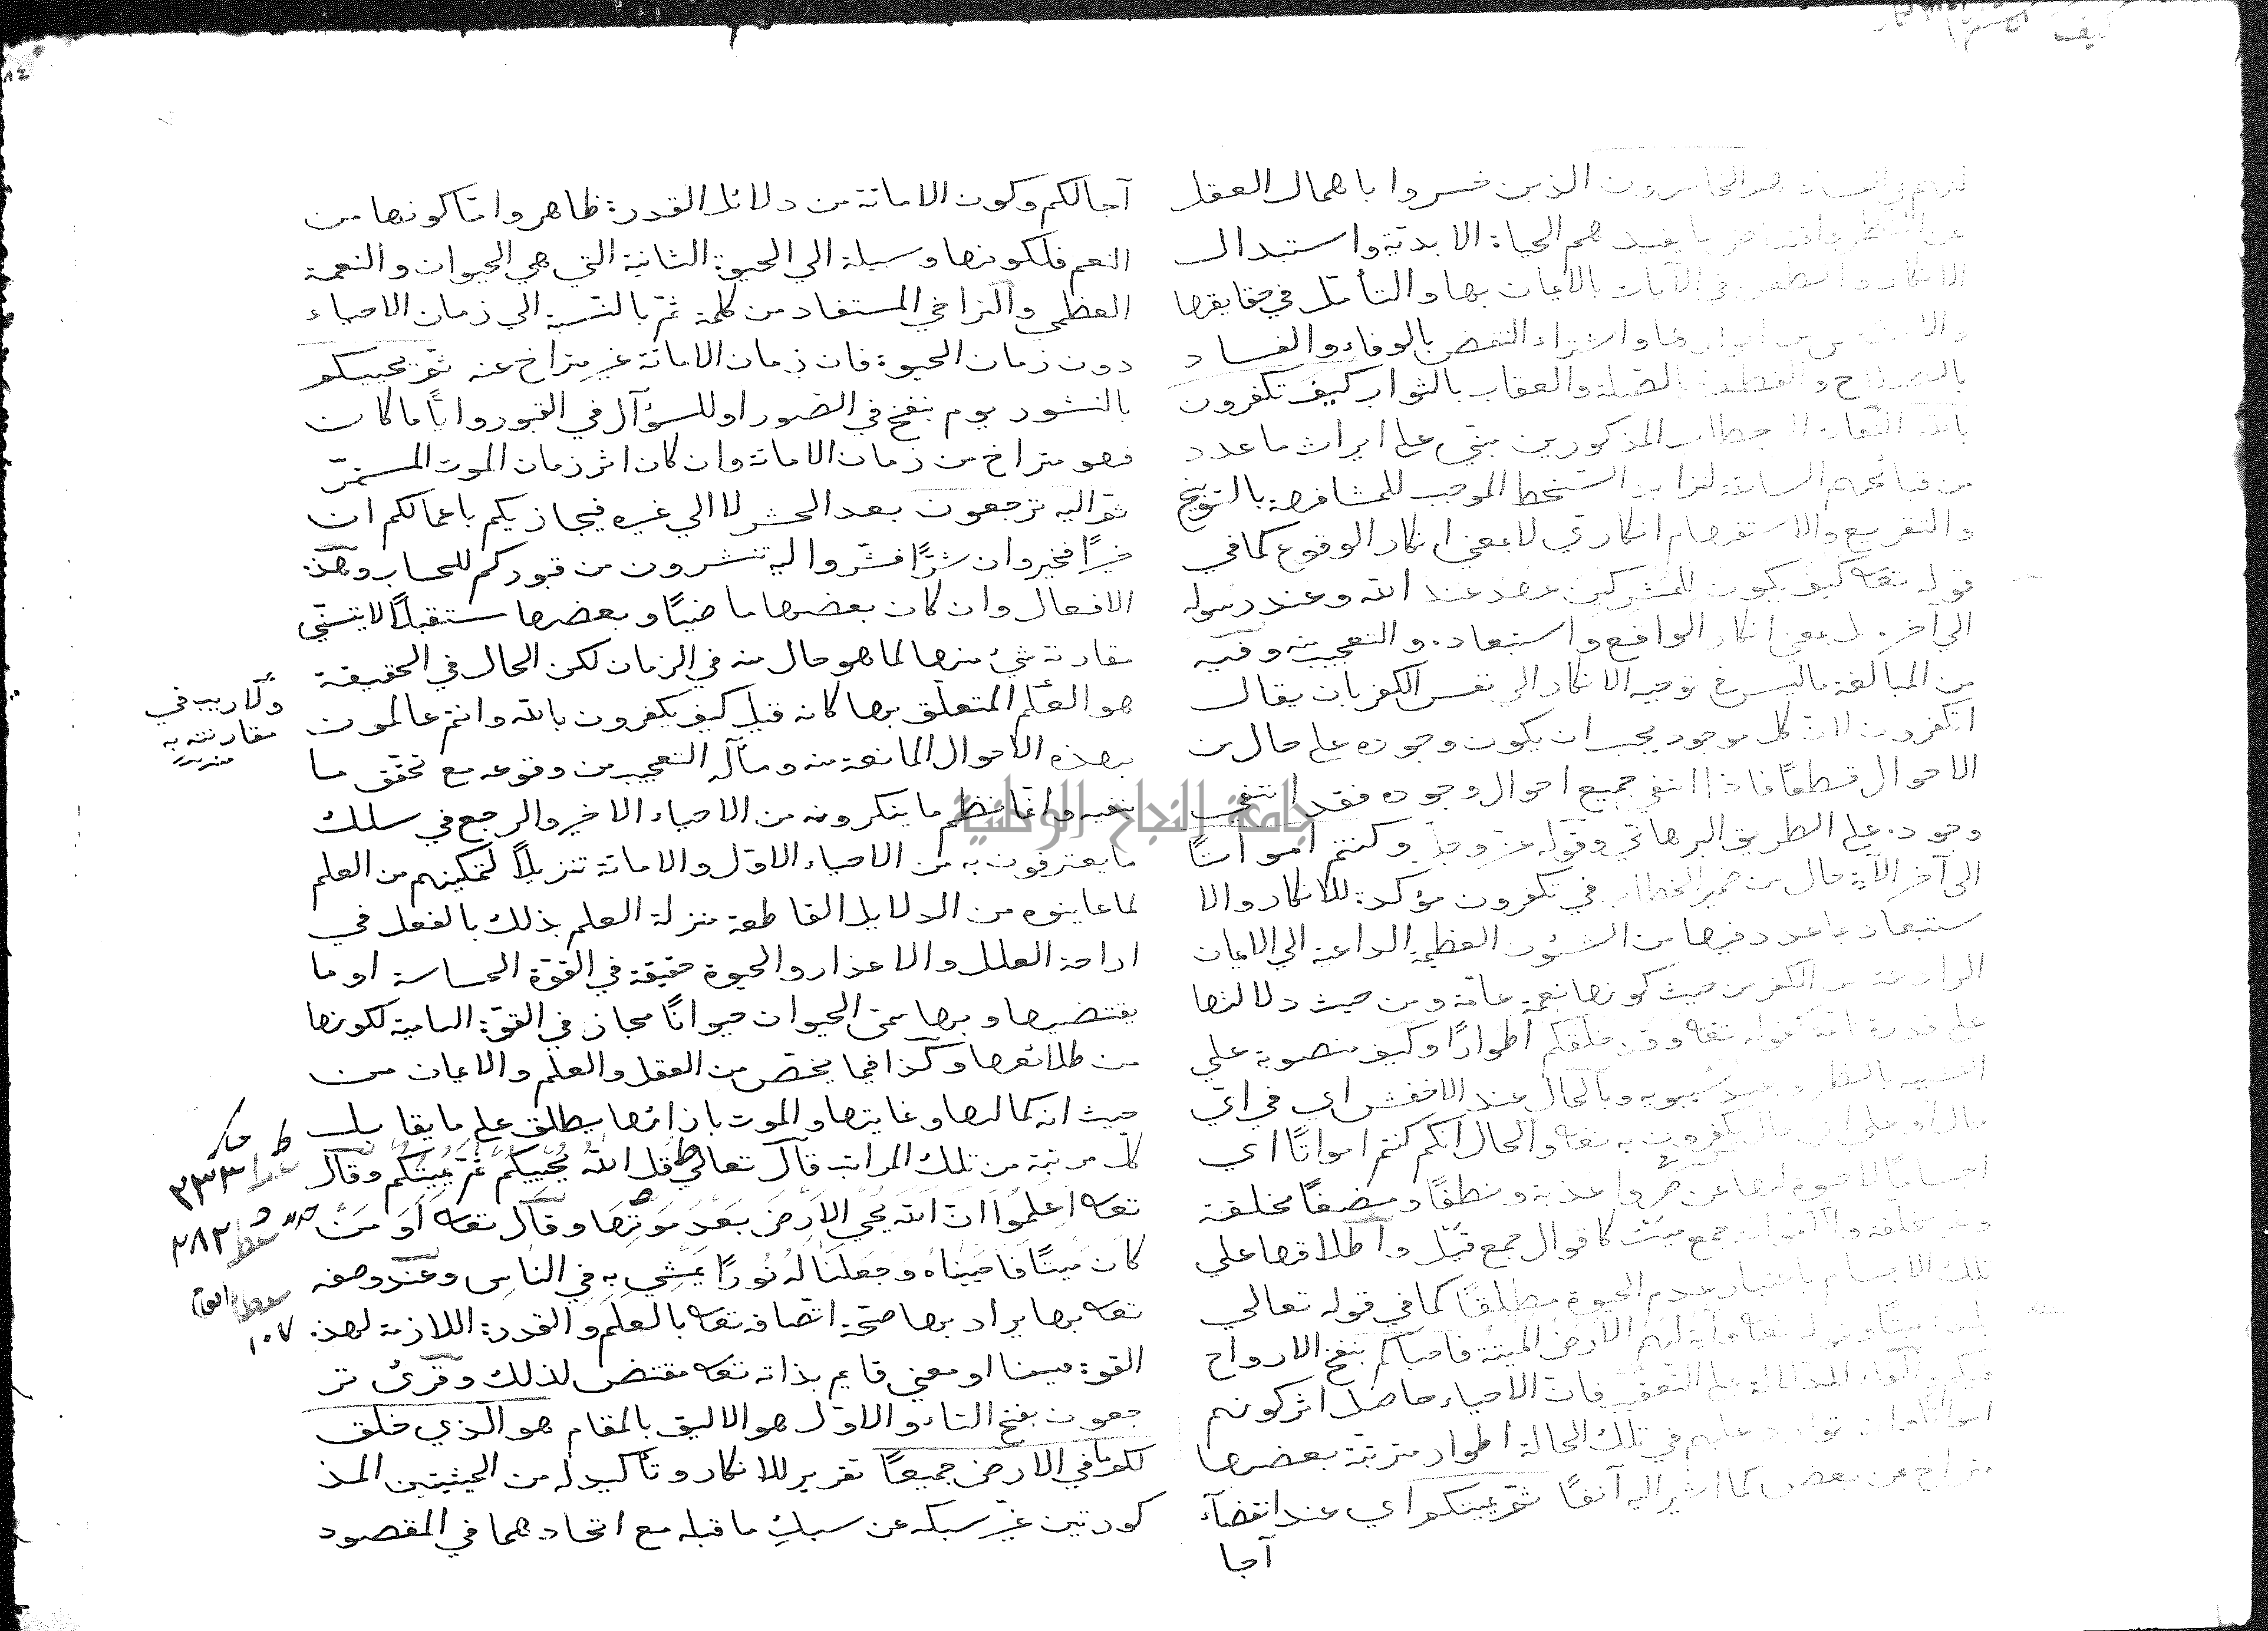 هم الخاسرون الذين خسروا باهمال العقل
عن النظر بما يفيدهم الحياة الابدية واستبدال
الانكار والطعن في الآيات بالايمان بها والتأمل في حقايقها
من انوارها واشتراء النقض بالوفاء والفساد
بالصلاح والقطيعة بالصلة والعقاب بالثواب كيف تكفرون
بالله التفات الى خطاب المذكورين مبني على ايراث ما عدد
من قبائحهم السابقة لتزايد السخط الموجب للمشافهة بالتوبيخ
والتقريع والاستفهام انكاري لا بمعنى انكار الوقوع كما في
قوله تعه كيف يكون للمشركين عهد عند الله وعند رسوله
الى آخره بل بمعنى انكار الواقع واستبعاده والتعجيب منه وفيه
من المبالغة ما ليس في توجيه الانكار الى نفس الكفر بان يقال
اتكفرون لان كل موجود يجب ان يكون وجوده على حال من
الاحوال قطعًا فاذا انتفى جميع احوال وجوده فقد انتفى
وجوده على الطريق البرهاني وقوله عز وجل وكنتم امواتًا
الى آخر الآية حال من ضمير الخطاب في تكفرون مؤكدة للانكار والا
ستبعاد بما عدد فيها من الشؤن العظيمة الداعية الى الايمان
الرادعة من الكفر من حيث كونها نعمة عامة ومن حيث دلالتها
على قدرة تامة كقوله تعه وقد خلقكم اطوارًا وكيف منصوبة على
التشبيه بالظرف عند سيبويه وبالحال عند الاخفش اي في اي
حال او على اي حال تكفرون به تعه والحال انكم كنتم امواتًا اي
اجسامًا لا حيوة لها عناصر واغذية ونطفًا ومضغًا مخلقة
وغير مخلقة والاموات جمع ميت كاقوال جمع قيل واطلاقها على
تلك الاجسام باعتبار عدم الحيوة مطلقًا كما في قوله تعالى
بلدة ميتًا وقوله تعه وآية لهم الارض الميتة فاحياكم بنفخ الارواح
فيكم والفاء للدلالة على التعقيب فان الاحياء حاصل اثر كونهم
امواتًا وان توارد عليهم في تلك الحالة اطوار مترتبة بعضها
متراخ عن بعض كما اشير اليه آنفًا ثم يميتكم اي عند انقضاء
آجا
آجالكم وكون الاماتة من دلائل القدرة ظاهر واما كونها من
النعم فلكونها وسيلة الى الحيوة الثانية التي هي الحيوان والنعمة
العظمى والتراخي المستفاد من كلمة ثم بالنسبة الى زمان الاحياء
دون زمان الحيوة فان زمان الاماتة غير متراخ عنه ثم يحييكم
بالنشور يوم ينفخ في الصور او للسؤال في القبور وايًّا ما كان
فهو متراخ من زمان الاماتة وان كان اثر زمان الموت المستمر
ثم اليه ترجعون بعد الحشر لا الى غيره فيجازيكم باعمالكم ان
خيرًا فخير وان شرًّا فشر واليه تنشرون من قبوركم للحساب وهذه
الافعال وان كان بعضها ماضيًا وبعضها مستقبلًا لا يتسنى
مقارنة شئ منها لما هو حال منه في الزمان لكن الحال في الحقيقة
هو العلم المتعلق بها كانه قيل كيف تكفرون بالله وانتم عالمون
بهذه الاحوال المانعة منه ومآله التعجيب من وقوعه مع تحقق ما
ينفيه وانما نظم ما ينكرونه من الاحياء الاخير والرجع في سلك
ما يعترفون به من الاحياء الاول والاماتة تنزيلًا لتمكينهم من العلم
لما عاينوه من الدلايل القاطعة منزلة العلم بذلك بالفعل في
ازاحة العلل والاعذار والحيوة حقيقة في القوة الحساسة او ما
يقتضيها وبها سمى الحيوان حيوانًا مجاز في القوة النامية لكونها
من طلائعها وكذا فيما يخص من العقل والعلم والايمان من
حيث انه كمالها وغايتها والموت بازائها يطلق على ما يقابل
كل مرتبة من تلك المراتب قال تعالى قل الله يحييكم ثم يميتكم وقال
تعه اعلموا ان الله يحي الارض بعد موتها وقال تعه او من
كان ميتًا فاحييناه وجعلنا له نورًا يمشي به في الناس وعند وصفه
تعه بها يراد بها صحة اتصافه تعه بالعلم والقدرة اللازمة لهذه
القوة فينا او معنى قايم بذاته تعه مقتض لذلك وقرئ تر
جعون بفتح التاء والاول هو الاليق بالمقام هو الذي خلق
لكم ما في الارض جميعًا تقرير للانكار وتأكيد له من الحيثيتين المذ
كورتين غير سبكه عن سبك ما قبله مع اتحادهما في المقصود
ولا ريب في
مقارنته به
٢٣٣
٢٨٢
١٠٧
جامعة النجاح الوطنية